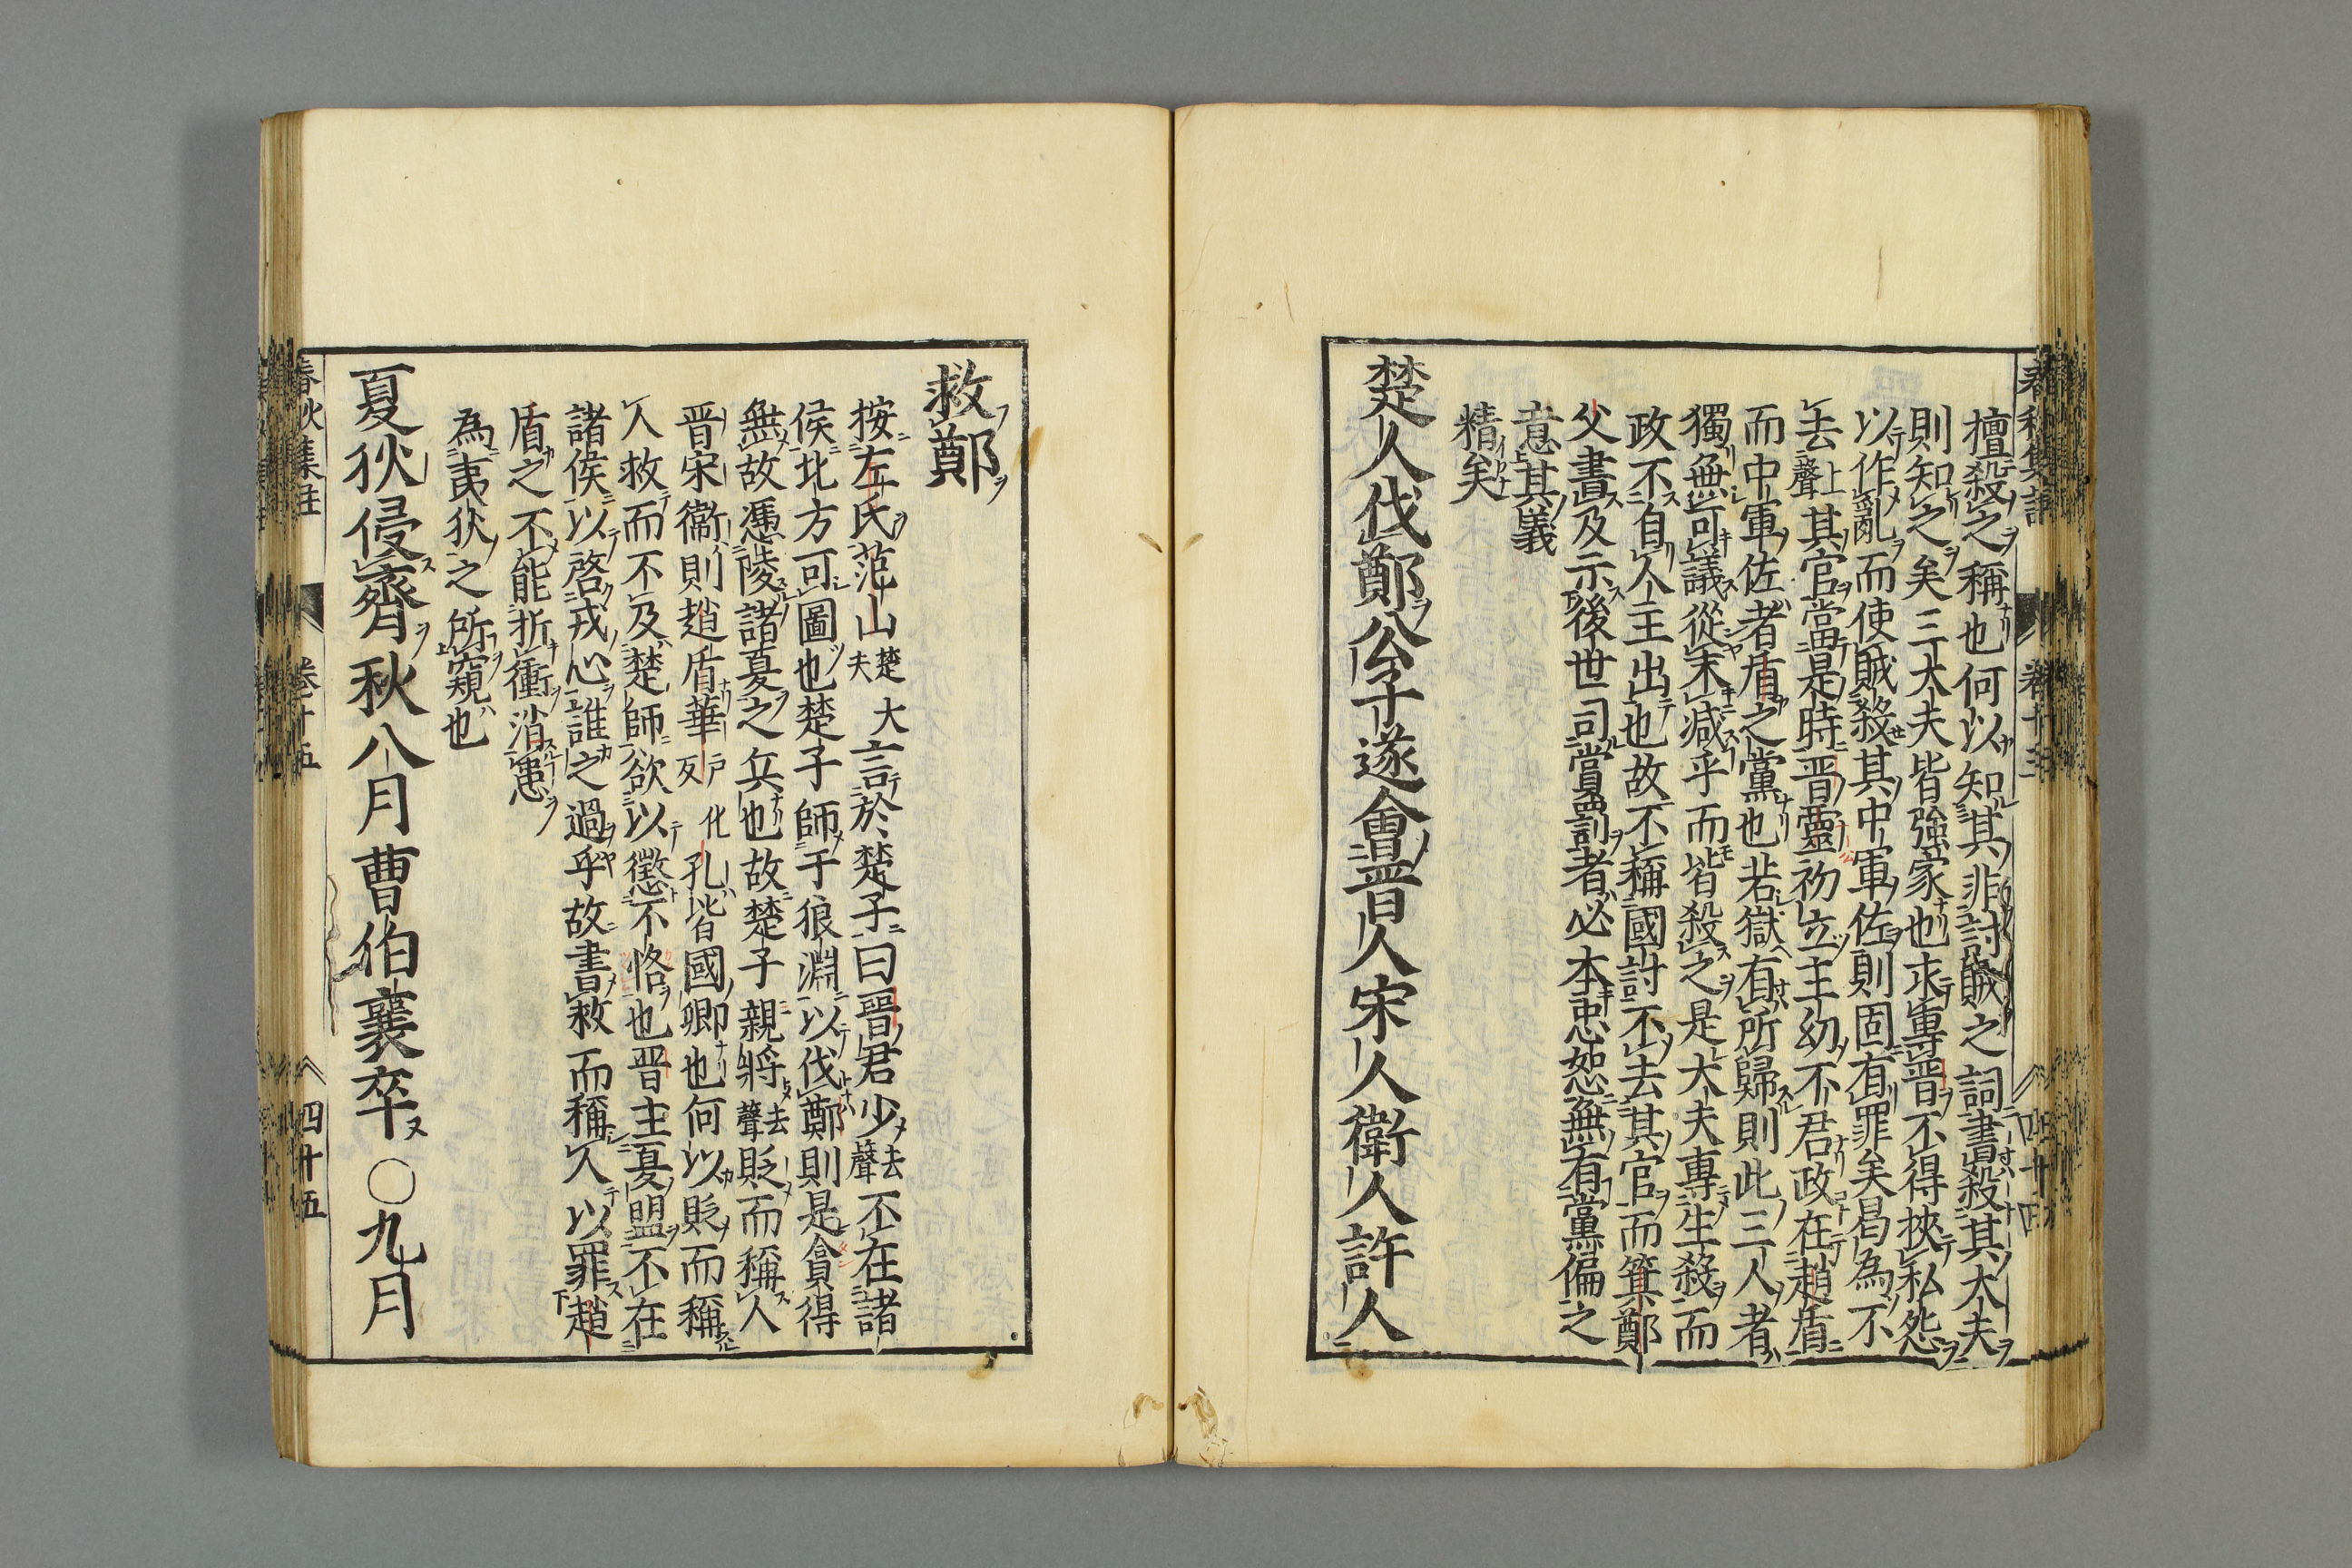 擅殺之稱也何以知其非討賊之詞書殺其大夫
則知之矣三大夫皆強家也求專晋不得挾私怨
以作亂而使賊殺其中軍佐則固有罪矣曷為不
去上聲其官當是時晋靈初立主幼不君政在趙盾
而中軍佐者盾之黨也若獄有所歸則此三人者
獨無可議從末減乎而皆殺之是大夫專生殺而
政不自人主出也故不稱國討不去其官而箕鄭
父書及示後世司賞罰者必本忠恕無有黨偏之
意其義
精矣
楚人伐鄭公子遂會晋人宋人衛人許人
救鄭
按左氏范山楚大夫言於楚子曰晋君少去聲不在諸
侯北方可圖也楚子師于狼淵以伐鄭則是貪得
無故憑陵諸夏之兵也故楚子親將去聲貶而稱人
晋宋衞則趙盾華戸化反孔皆國卿也何以貶而稱
人救而不及楚師欲以懲不恪也晋主夏盟不在
諸侯以啓戎心誰之過乎故書救而稱人以罪趙
盾之不能折衝消患
為夷狄之所窺也
夏狄侵齊秋八月曹伯襄卒〇九月
春秋集註
卷十五
四十五